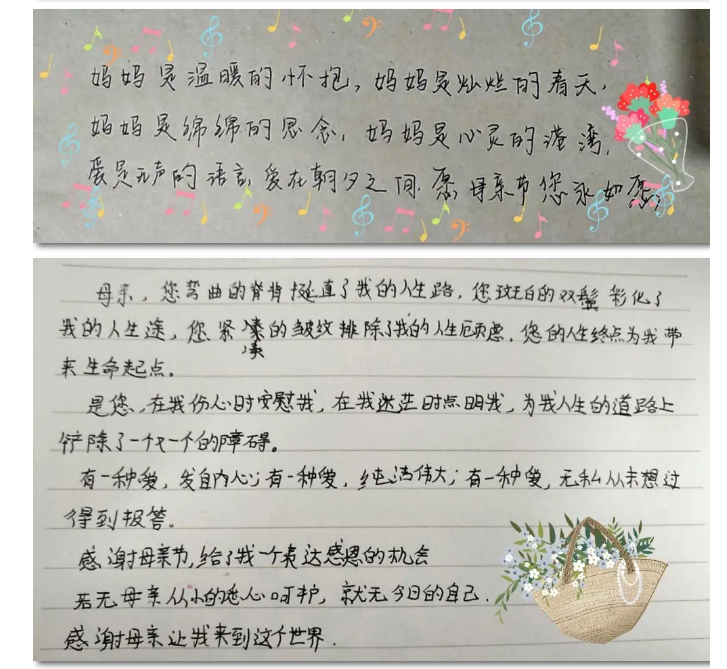 妈妈是温暖的怀抱，妈妈是灿烂的春天，
妈妈是绵绵的思念，妈妈是心灵的港湾，
爱是无声的语言，爱在朝夕之间。愿母亲节您永如愿，
母亲，您弯曲的脊背挺直了我的人生路，您斑白的双鬓彩化了
我的人生途，您紧凑的皱纹排除了我的人生顾虑，您的人生终点为我带
来生命起点。
是您，在我伤心时安慰我，在我迷茫时点明我，为我人生的道路上
铲除了一个又一个的障碍。
有一种爱，发自内心；有一种爱，纯洁伟大；有一种爱，无私从未想过
得到报答。
感谢母亲节，给了我一个表达感恩的机会
若无母亲从小的悉心呵护，就无今日的自己．
感谢母亲让我来到这个世界．